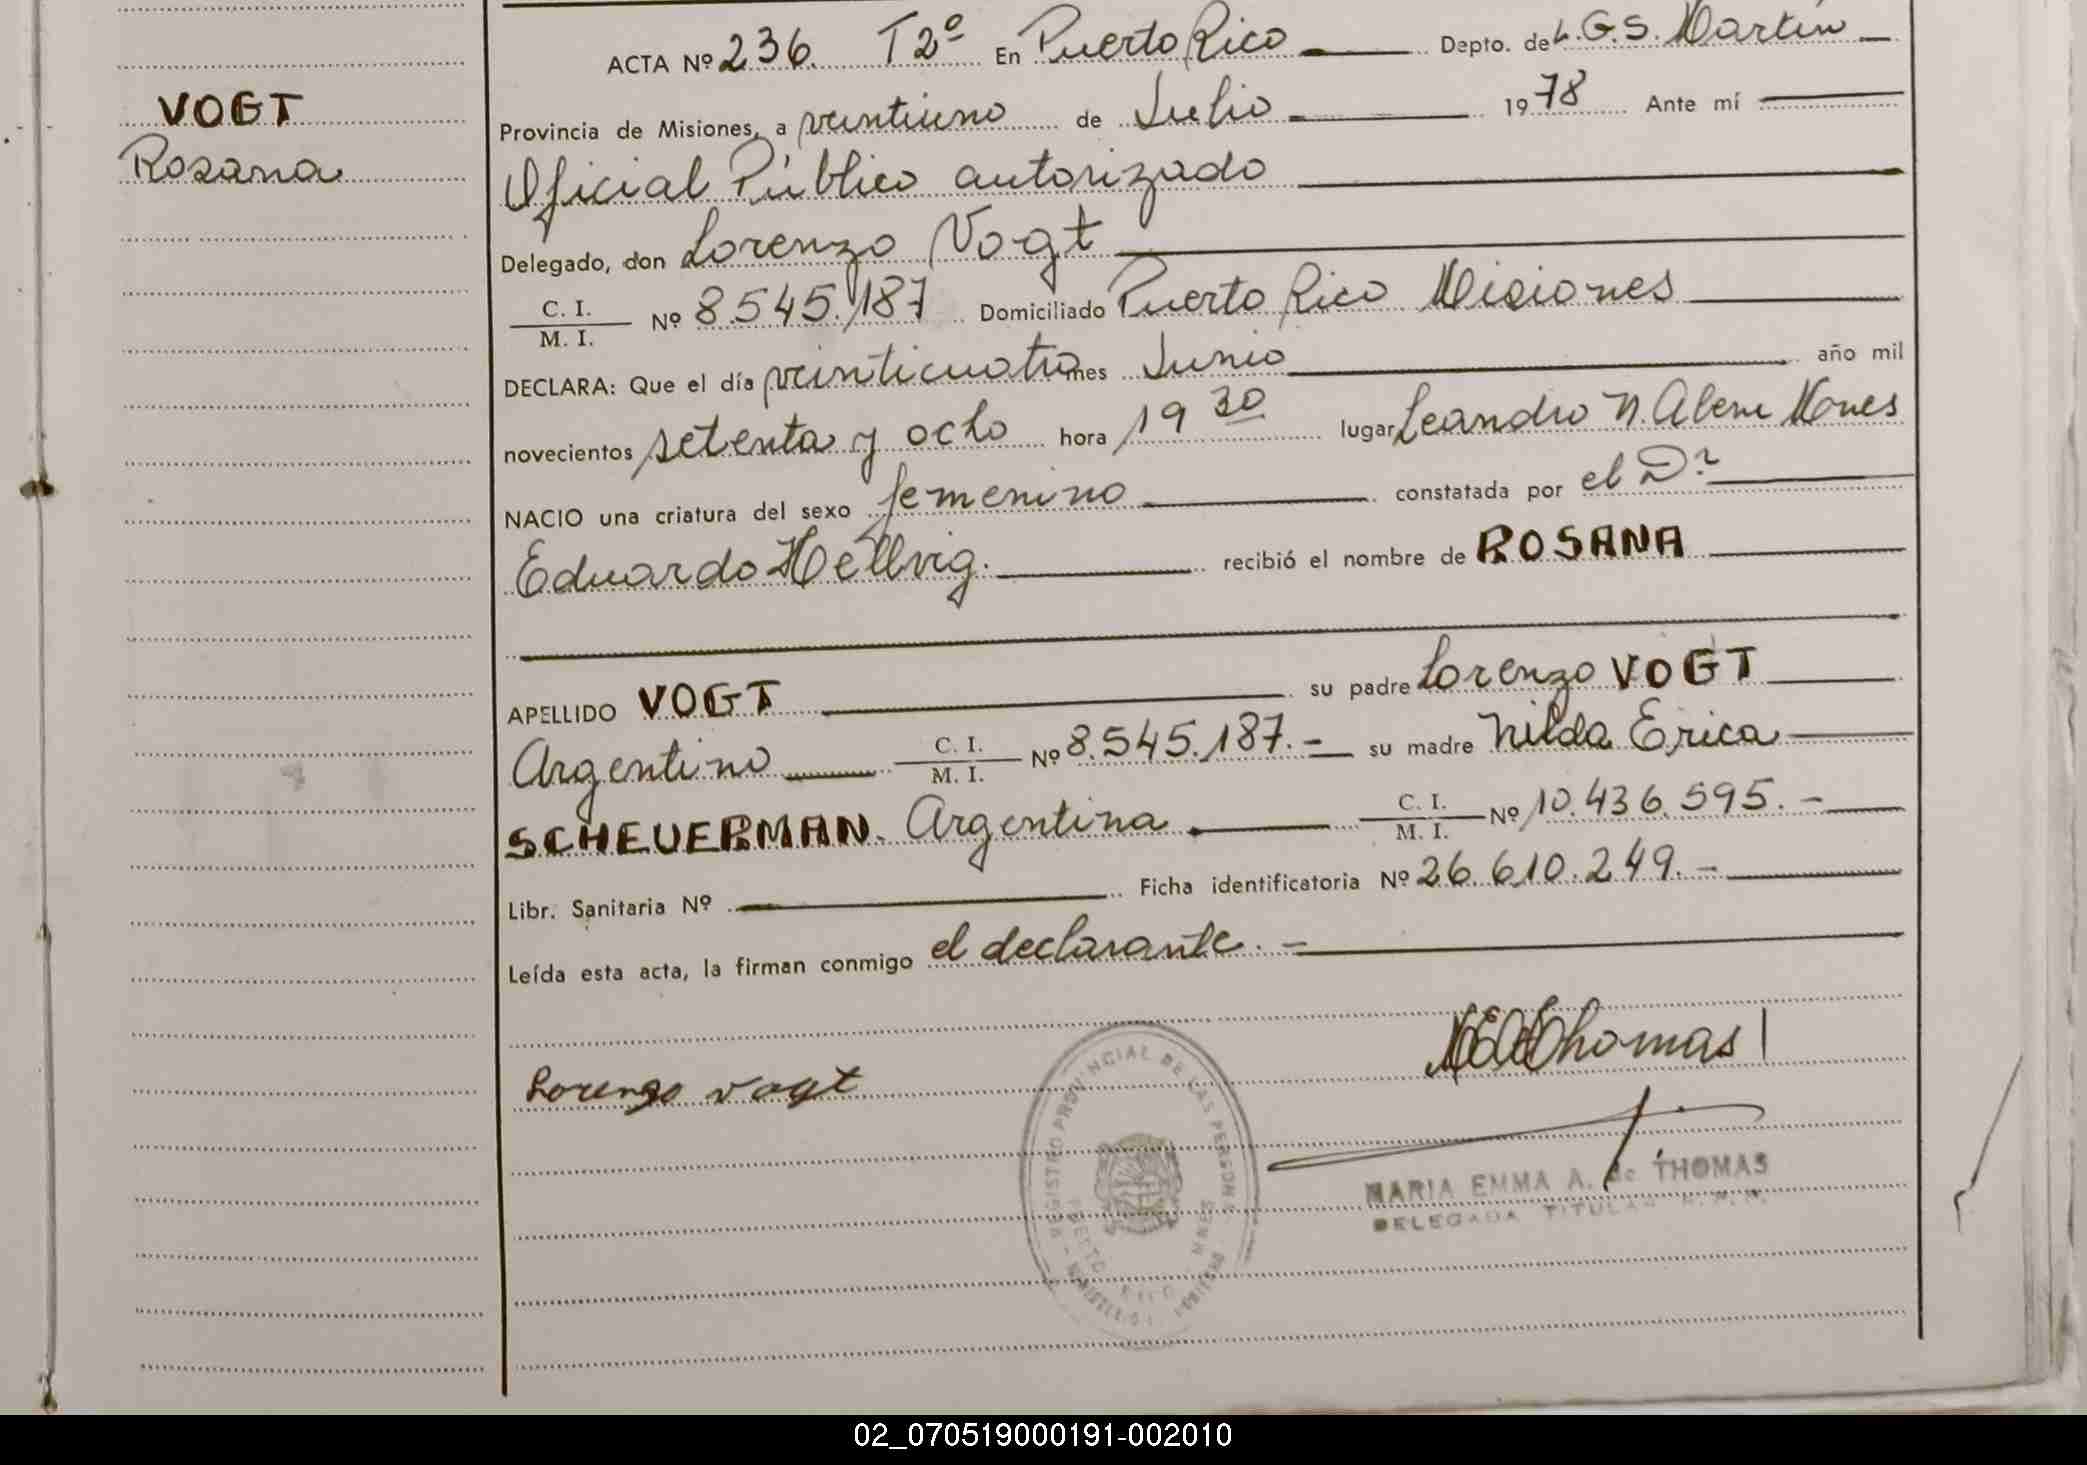 ACTA Nº 236. T2º En Puerto Rico Depto. de L.G.S. Martín
VOGT
Provincia de Misiones, a veintiuno de Julio 1978 Ante mí
Rosana
Oficial Público autorizado
Delegado, don Lorenzo Vogt
C. I.
M. I. Nº 8.545.187 Domiciliado Puerto Rico Misiones
DECLARA: Que el día veinticuatro mes Junio año mil
novecientos setenta y ocho hora 19 30 lugar Leandro N. Alem Mnes
NACIO una criatura del sexo femenino constatada por el Dr
Eduardo Hellvig. recibió el nombre de ROSANA
APELLIDO VOGT su padre Lorenzo VOGT
Argentino C. I. M. I. Nº 8.545.187.- su madre Nilda Erica
SCHEUERMAN. Argentina C. I. M. I. Nº 10.436.595.-
Libr. Sanitaria Nº Ficha identificatoria Nº 26.610.249.-
Leída esta acta, la firman conmigo el declarante.-
Thomas
Lorenzo Vogt
REGISTRO PROVINCIAL DE LAS PERSONAS
MARIA EMMA A. de THOMAS
DELEGADA TITULAR
PUERTO RICO MNES
MINISTERIO GOBIERNO
02_070519000191-002010